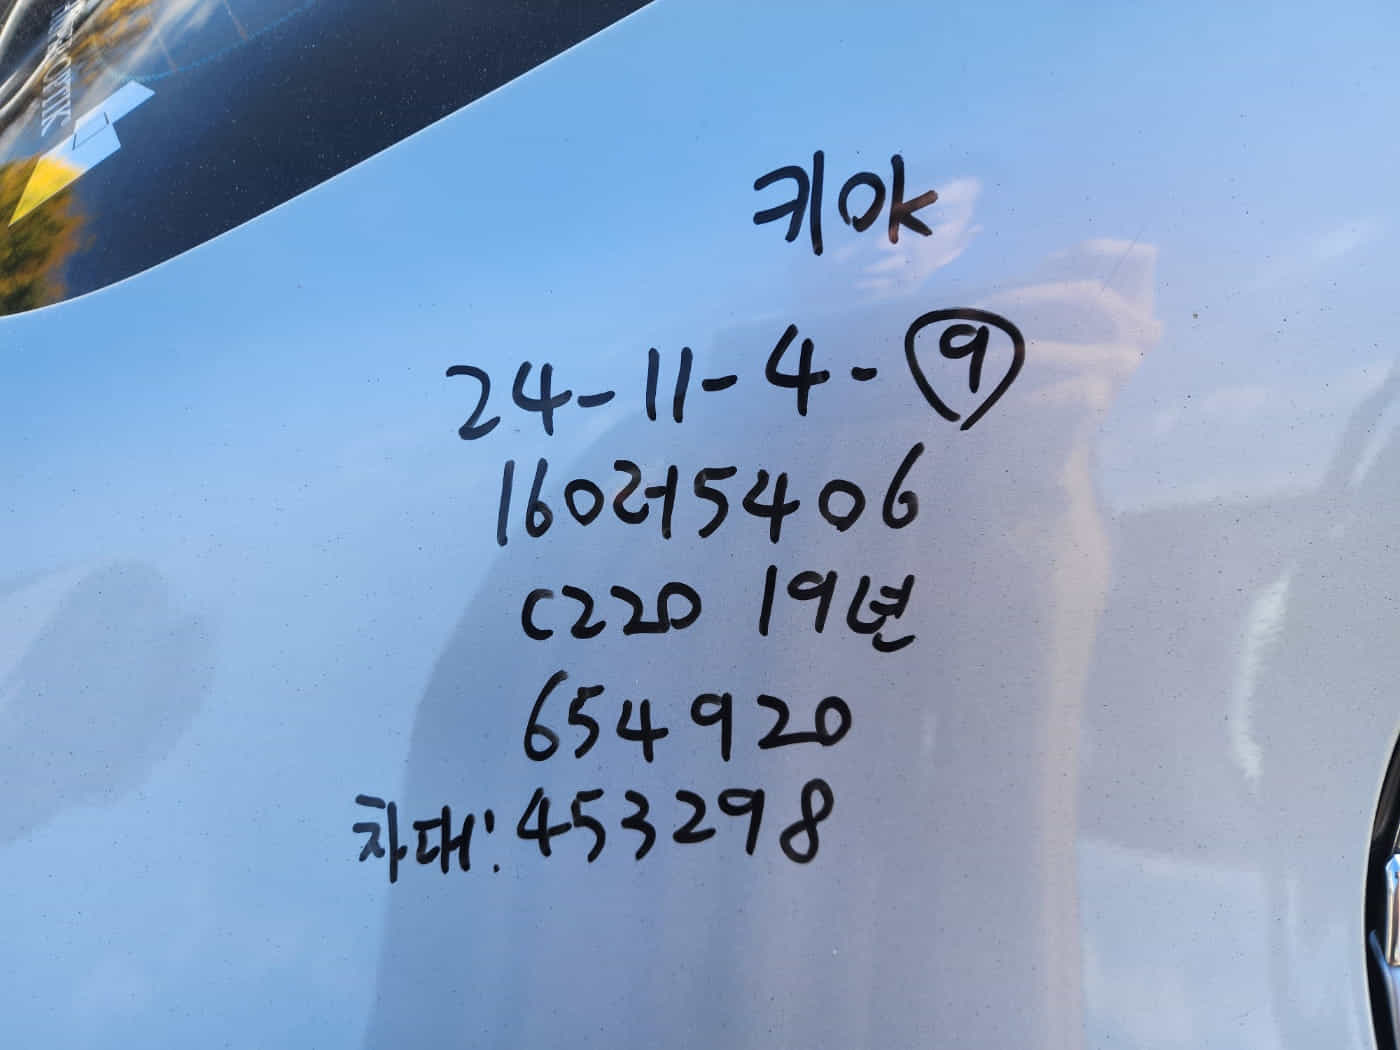 키OK
24-11-4-⑨
160러5406
C220 19년
654920
차대: 453298